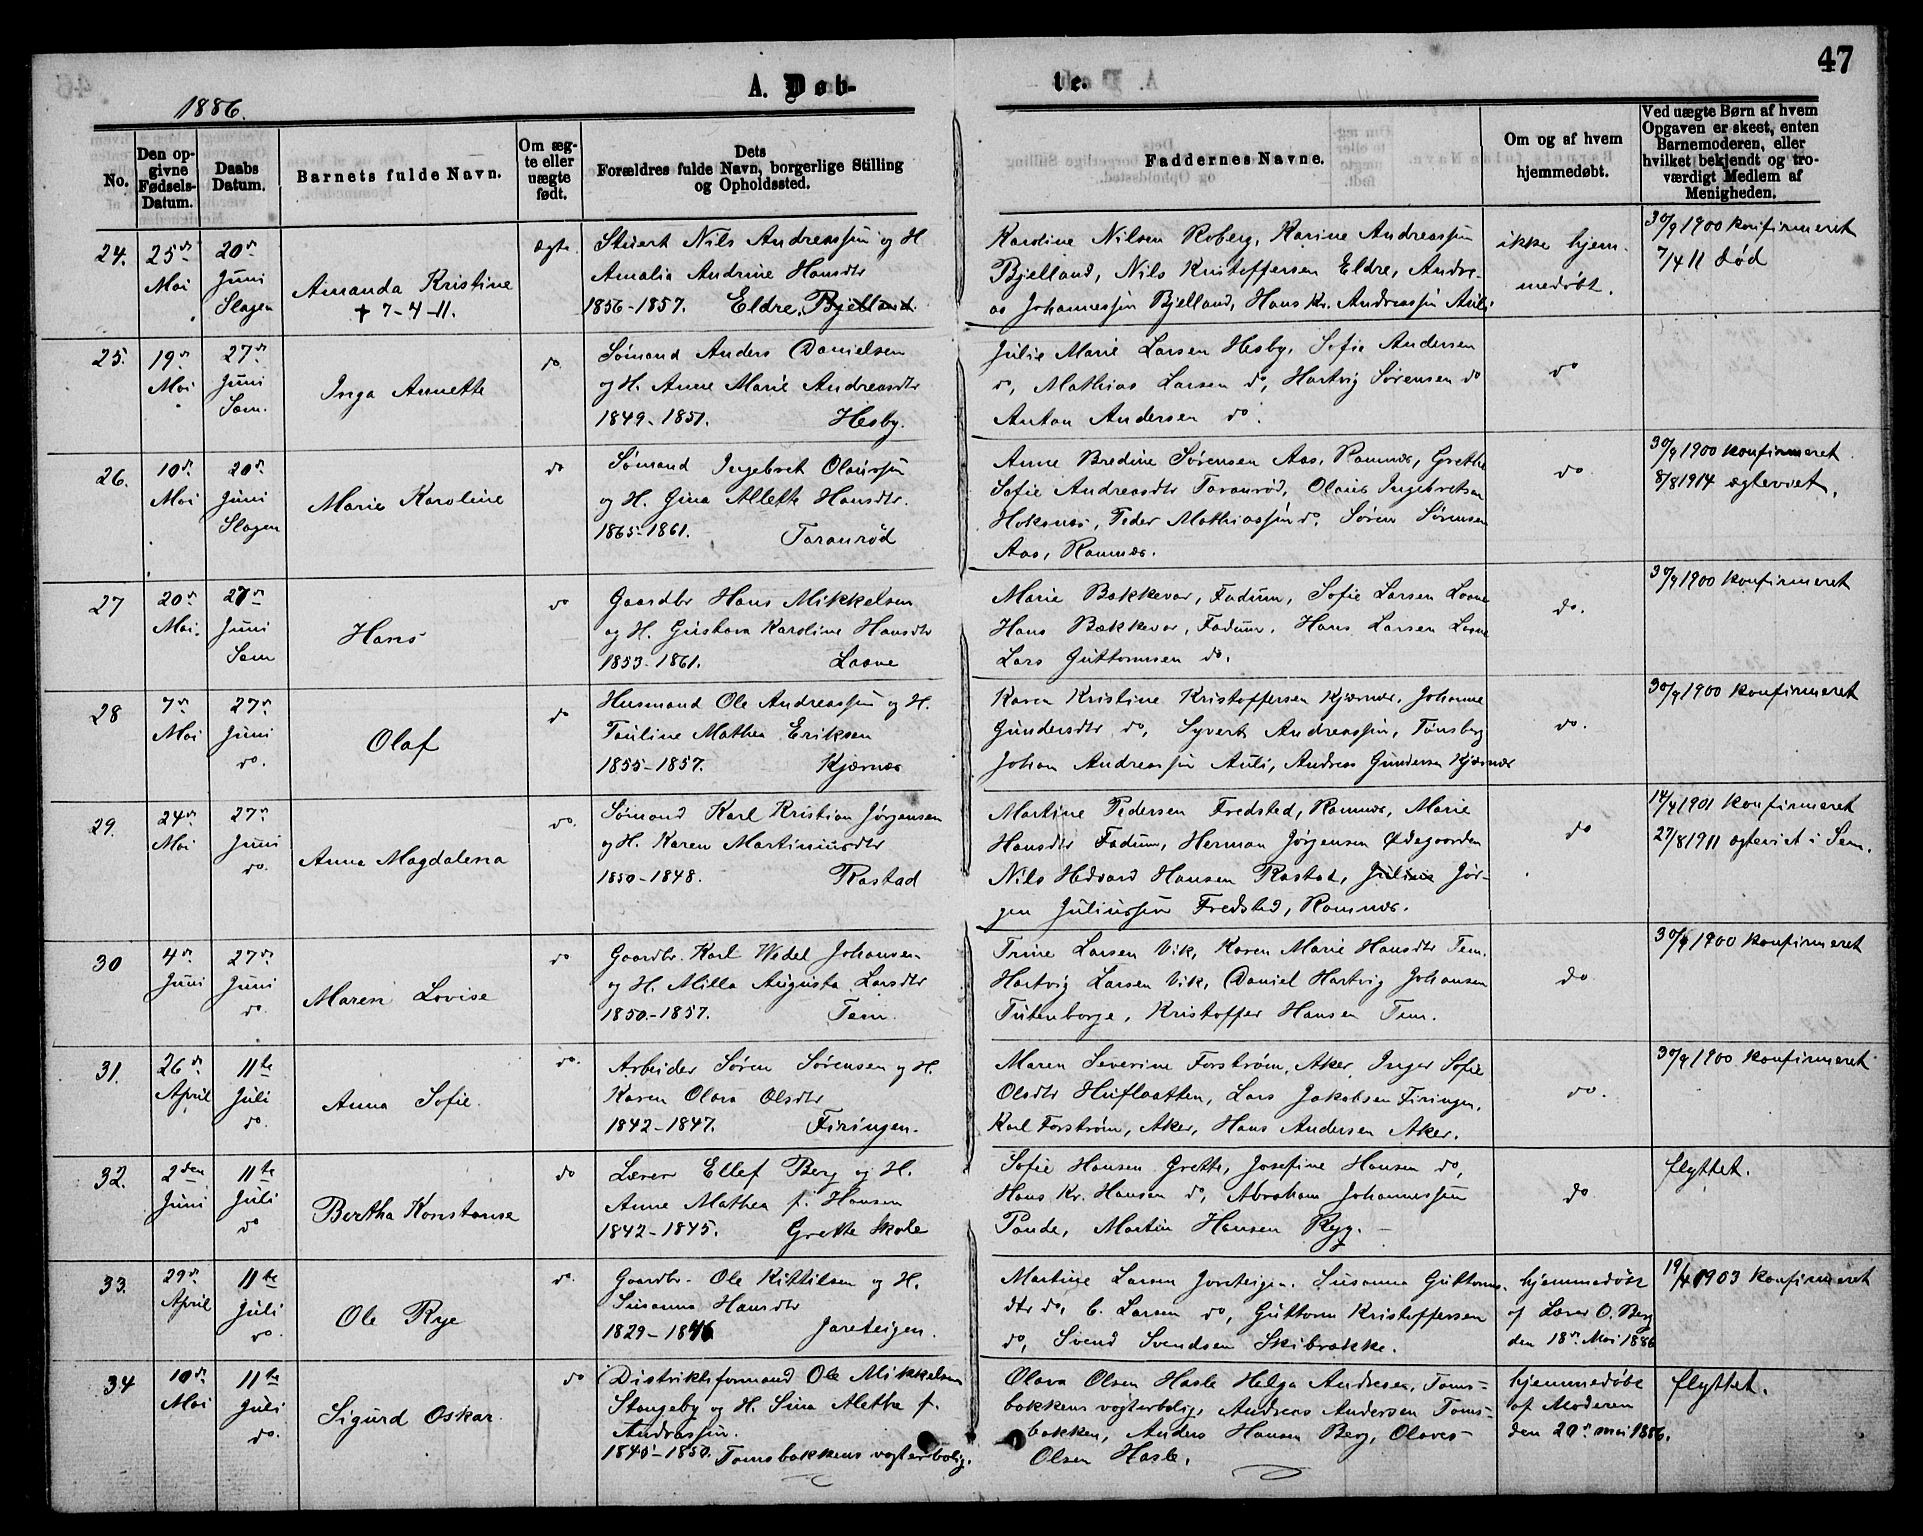 47
A. Døb-
te.
1886.
No.
Den opgivne Fødsels-Datum.
Daabs Datum.
Barnets fulde Navn.
Om ægte eller uægte født.
Dets Forældres fulde Navn, borgerlige Stilling og Opholdssted.
Faddernes Navne.
Om og af hvem hjemmedøbt.
Ved uægte Børn af hvem Opgaven er skeet, enten Barnemoderen, eller hvilket bekjendt og troværdigt Medlem af Menigheden.
24.
25de Mai
20de Juni Slagen
Amanda Kristine
† 7-4-11.
ægte
Stuert Nils Andreassen og H.
Amalia Andrine Hansdtr
1856-1857. Eldre, Bjelland.
Karoline Nilsen Roberg, Karine Andreassen
Bjelland, Nils Kristoffersen Eldre, Andre-
as Johannessen Bjelland, Hans Kr. Andreassen Auli
ikke hjem-
medøbt.
30/9 1900 konfirmeret
7/4 11 død
25.
19de Mai
27de Juni Sem.
Inga Annette
do
Sømand Anders Danielsen
og H. Anne Marie Andreasdtr
1849-1851. Hesby.
Julie Marie Larsen Hesby, Sofie Andersen
do, Mathias Larsen do, Hartvig Sørensen do
Anton Andersen do.
do
26.
10de Mai
20de Juni Slagen
Marie Karoline
do
Sømand Ingebret Olaussen
og H. Gina Alette Hansdtr.
1865-1861. Taranrød
Anne Bredine Sørensen Aas, Ramnæs, Grethe
Sofie Andreasdtr Taranrød, Olaus Ingebretsen
Hoksnes, Peder Mathiassen do. Søren Sørensen
Aas, Ramnæs.
do.
30/9 1900 konfirmeret
8/8 1914 ægteviet.
27
20de Mai.
27de Juni Sem
Hans
do
Gaardbr Hans Mikkelsen
og H. Gustava Karoline Hansdtr
1853-1861. Lasne
Marie Bakkevar, Fadum, Sofie Larsen Lasne
Hans Bækkevar, Fadum, Hans Larsen Lasne
Lars Guttormsen do.
do.
30/9 1900 konfirmeret
28
7de Mai
27de Juni do.
Olaf
do
Husmand Ole Andreassen og H.
Pauline Mathea Eriksen
1855-1857. Kjærnæs
Karen Kristine Kristoffersen Kjærnæs, Johanne
Gundersdtr do, Syvert Andreassen, Tønsberg
Johan Andreassen Auli, Andreas Gundersen Kjærnæs
do.
30/9 1900 konfirmeret
29.
24de Mai
27de Juni do.
Anna Magdalena
do.
Sømand Karl Kristian Jørgensen
og H. Karen Martiniusdtr
1850-1848. Rastad
Martine Pedersen Fredsted, Ramnæs, Marie
Hansdtr Fadum, Herman Jørgensen Ødegaarden
Nils Hedvard Hansen Rastad, Juline Jør-
gen Juliussen Fredsted, Ramnæs.
do
14/4 1901 konfirmeret
27/8 1911 ægteviet i Sem.
30
4de Juni
27de Juni do.
Maren Lovise
do
Gaardbr. Karl Wedel Johansen
og H. Milla Augusta Larsdtr
1850-1857. Tem.
Trine Larsen Vik, Karen Marie Hansdtr Tem.
Hartvig Larsen Vik, Daniel Hartvig Johansen
Tutenborge, Kristoffer Hansen Tem.
do
30/9 1900 konfirmeret
31.
26de April
11te Juli do.
Anna Sofie.
do.
Arbeider Søren Sørensen og H.
Karen Olava Olsdtr
1842-1847. Firingen.
Maren Severine Forstrøm, Aker, Inger Sofie
Olsdtr Huflaatten, Lars Jakobsen Firingen,
Karl Forstrøm, Aker, Hans Andersen Aker.
do.
30/9 1900 konfirmeret
32.
2den Juni
11te Juli do
Bertha Konstanse
do
Lærer Ellef Berg og H.
Anne Mathea f. Hansen
1842-1845. Grette Skole
Sofie Hansen Grette, Josefine Hansen do,
Hans Kr. Hansen do, Abraham Johannessen
Pande, Martin Hansen Ryg.
do
flyttet.
33.
29de April
11te Juli do.
Ole Rye
do.
Gaardbr. Ole Kittilsen og H.
Susanna Hansdtr
1829-1846 Jareteigen.
Martine Larsen Jareteigen, Susanna Guttorms-
dtr do, C. Larsen do, Guttorm Kristoffersen
do, Svend Svendsen Skibrakke.
hjemmedøbt
af Lærer O. Berg
den 18de Mai 1886
19/4 1903 konfirmeret
34
10de Mai
11te Juli do.
Sigurd Oskar.
do
Distriktsformand Ole Mikkelsen
Stangeby og H. Sina Alethe f.
Andreassen.
1845-1850. Tomsbakkens vogterbolig.
Olava Olsen Hasle Helga Andresen, Toms-
bakkens vogterbolig, Andreas Andersen Toms-
bakken, Anders Hansen Berg, Olaves
Olsen Hasle.
hjemmedøbt
af Moderen
den 20de mai 1886.
flyttet.